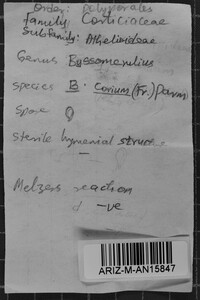 Order: Polyporales
family: Corticiaceae
Subfamily: Athelioideae
Genus Byssomerulius
species B. corium (Fr.) Parm
Spore
sterile hymenial struc.
-
Melzers reaction
-ve
ARIZ-M-AN15847